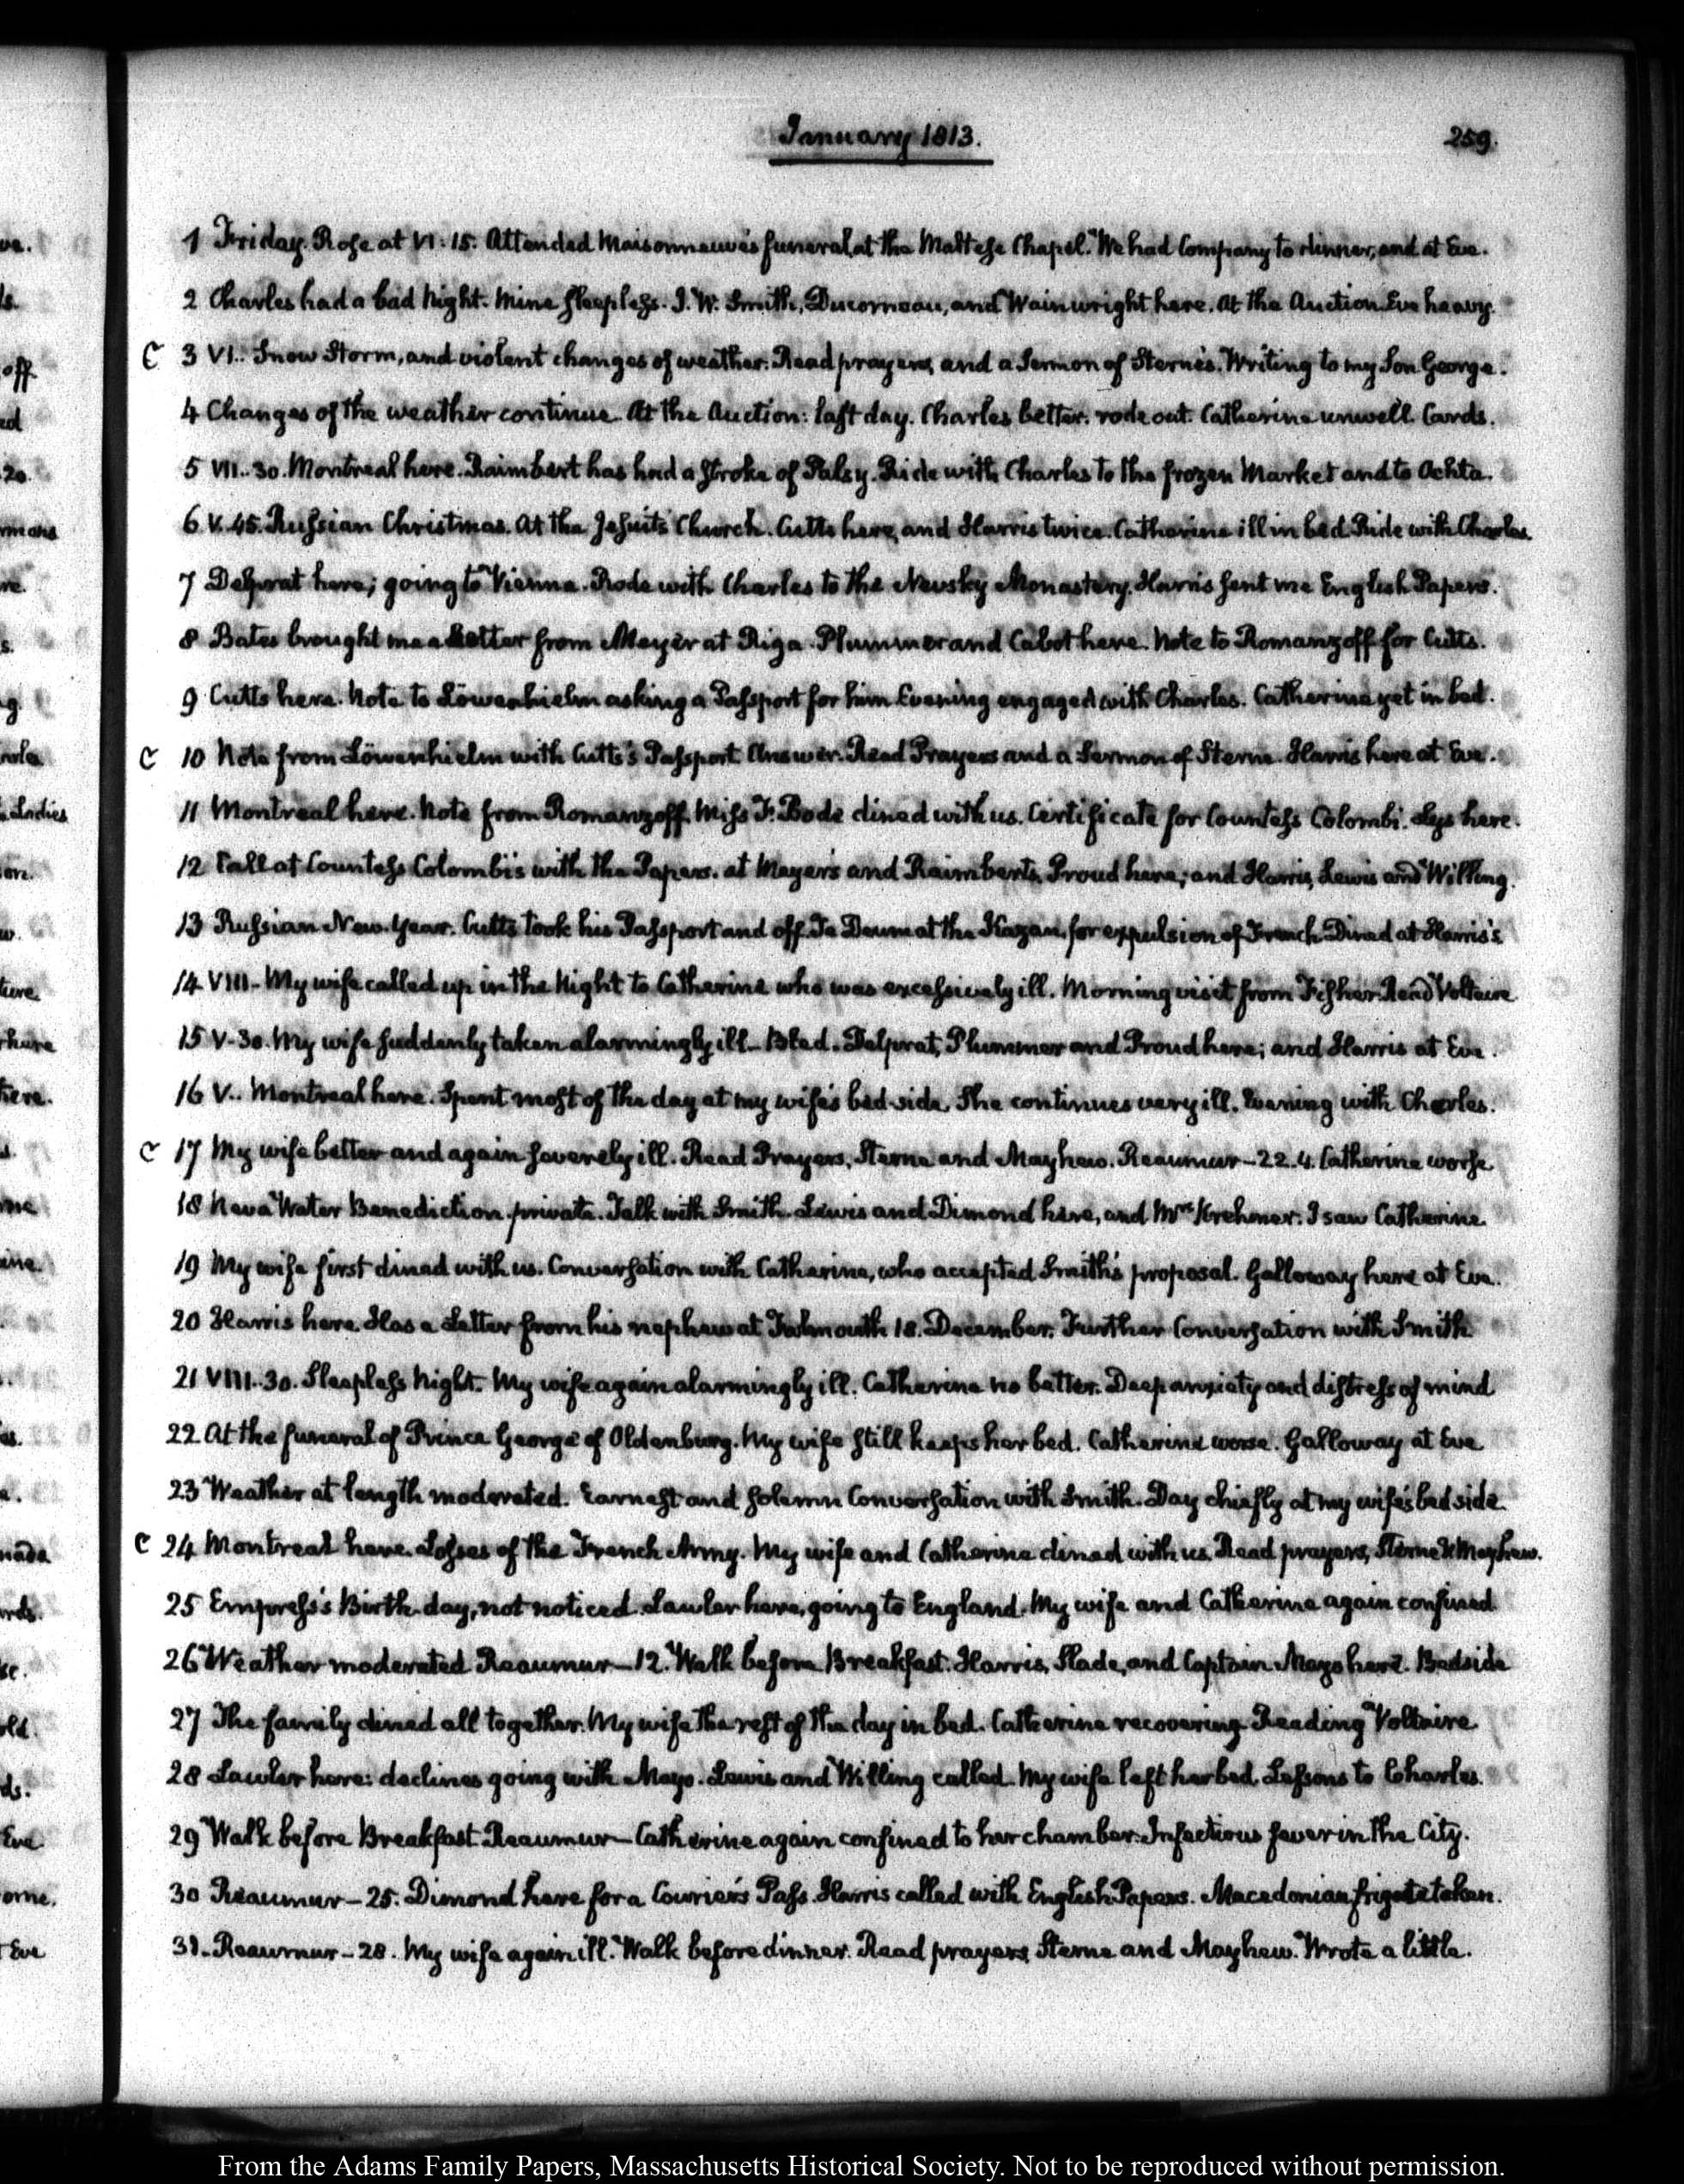 January 1813.
259.
1 Friday. Rose at VI:15. Attended Maisonneuve's funeral at the Maltese Chapel. We had Company to dinner, and at Eve.
2 Charles had a bad Night. Mine sleepless. J. W. Smith, Ducorneau, and Wainwright here. At the Auction. Eve heavy.
C 3 VI.. Snow Storm, and violent changes of weather. Read prayers, and a Sermon of Sterne's. Writing to my Son George.
4 Changes of the weather continue. At the Auction: last day. Charles better. rode out. Catherine unwell. Cards.
5 VII..30. Montreal here. Raimbert has had a stroke of Palsy. Ride with Charles to the frozen Market and to Ochta.
6 V.45. Russian Christmas. At the Jesuits Church. Cutts here, and Harris twice. Catherine ill in bed. Ride with Charles.
7 Delprat here; going to Vienna. Rode with Charles to the Newsky Monastery. Harris sent me English Papers.
8 Bates brought me a Letter from Meyer at Riga. Plummer and Cabot here. Note to Romanzoff for Cutts.
9 Cutts here. Note to Löwenhielm asking a Passport for him. Evening engaged with Charles. Catherine yet in bed.
C 10 Note from Löwenhielm with Cutts's Passport. Answer. Read Prayers and a Sermon of Sterne. Harris here at Eve.
11 Montreal here. Note from Romanzoff. Miss F. Bode dined with us. Certificate for Countess Colombi. Lys here.
12 Call at Countess Colombi's with the Papers. at Meyer's and Raimbert's. Proud here; and Harris, Lewis and Willing.
13 Russian New Year. Cutts took his Passport and off. Te Deum at the Kazan, for expulsion of French. Dined at Harris's
14 VIII- My wife called up in the Night to Catherine who was excessively ill. Morning visit from Fisher. Read Voltaire
15 V-30. My wife suddenly taken alarmingly ill- Bled. Delprat, Plummer and Proud here; and Harris at Eve.
16 V.. Montreal here. Spent most of the day at my wife's bed side. She continues very ill. Evening with Charles.
C 17 My wife better and again severely ill. Read Prayers, Sterne and Mayhew. Reaumur-22.4. Catherine worse
18 Neva Water Benediction. private. Talk with Smith. Lewis and Dimond here, and Mrs Krehmer. I saw Catherine.
19 My wife first dined with us. Conversation with Catherine, who accepted Smith's proposal. Galloway here at Eve.
20 Harris here. Has a Letter from his nephew at Falmouth 18. December. Further Conversation with Smith
21 VIII..30. Sleepless Night. My wife again alarmingly ill. Catherine no better. Deep anxiety and distress of mind
22 At the funeral of Prince George of Oldenburg. My wife still keeps her bed. Catherine worse. Galloway at Eve
23 Weather at length moderated. Earnest and solemn Conversation with Smith. Day chiefly at my wife's bed side
C 24 Montreal here. Losses of the French Army. My wife and Catherine dined with us. Read prayers, Sterne & Mayhew.
25 Empress's Birth-day, not noticed. Lawler here, going to England. My wife and Catherine again confined
26 Weather moderated Reaumur-12. Walk before Breakfast. Harris, Slade, and Captain Mayo here. Bedside
27 The family dined all together. My wife the rest of the day in bed. Catherine recovering. Reading Voltaire
28 Lawler here: declines going with Mayo. Lewis and Willing called. My wife left her bed. Lessons to Charles.
29 Walk before Breakfast. Reaumur- Catherine again confined to her chamber. Infectious fever in the City.
30 Reaumur-25. Dimond here for a Courier's Pass. Harris called with English Papers. Macedonian frigate taken.
31. Reaumur-28. My wife again ill. Walk before dinner. Read prayers, Sterne and Mayhew. Wrote a little.
From the Adams Family Papers, Massachusetts Historical Society. Not to be reproduced without permission.